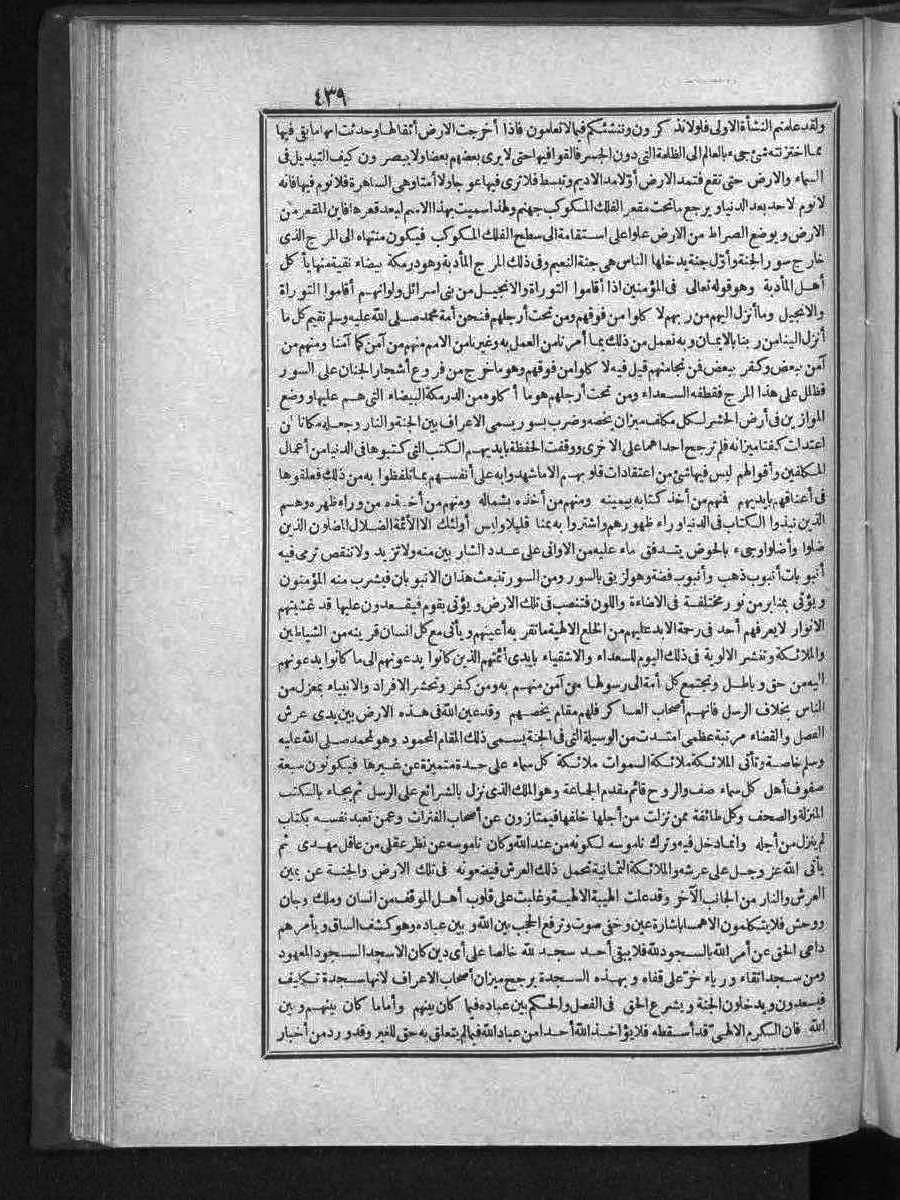 ٤٣٩
ولقد علمتم النشأة الاولى فلولا تذكرون وننشئكم فيما لا تعلمون فاذا أخرجت الارض أثقالها وحدثت انها ما بقي فيها
مما اختزنته شئ جيء بالعالم الى الظلمة التي دون الجسر فألقوا فيها حتى لا يرى بعضهم بعضا ولا يبصرون كيف التبديل في
السماء والارض حتى تقع فتمد الارض أوّلا مد الاديم وتبسط فلا ترى فيها عوجا ولا أمتا وهي الساهرة فلا نوم فيها فانه
لا نوم لاحد بعد الدنيا ويرجع ما تحت مقعر الفلك المكوكب جهنم ولهذا سميت بهذا الاسم لبعد قعرها فاين المقعر من
الارض ويوضع الصراط من الارض علوا على استقامة الى سطح الفلك المكوكب فيكون منتهاه الى المرج الذي
خارج سور الجنة وأوّل جنة يدخلها الناس هي جنة النعيم وفي ذلك المرج المأدبة وهو درمكة بيضاء نقية منها يأكل
أهل المأدبة وهو قوله تعالى في المؤمنين اذا أقاموا التوراة والانجيل من بني اسرائل ولو انهم أقاموا التوراة
والانجيل وما أنزل اليهم من ربهم لا كلوا من فوقهم ومن تحت أرجلهم فنحن أمة محمد صلى الله عليه وسلم نقيم كل ما
أنزل الينا من ربنا بالايمان وبه نعمل من ذلك بما أمرنا من العمل به وغيرنا من الامم منهم من آمن كما آمنا ومنهم من
آمن ببعض وكفر ببعض فمن نجا منهم قيل فيه لا كلوا من فوقهم وهو ما خرج من فروع أشجار الجنان على السور
فظلل على هذا المرج فقطفه السعداء ومن تحت أرجلهم هو ما أكلوه من الدرمكة البيضاء التي هم عليها ووضع
الموازين في أرض الحشر لكل مكلف ميزان يخصه وضرب بسور يسمى الاعراف بين الجنة والنار وجعله مكانا لمن
اعتدلت كفتا ميزانه فلم ترجح احداهما على الاخرى ووقفت الحفظة بايديهم الكتب التي كتبوها في الدنيا من أعمال
المكلفين وأقوالهم ليس فيها شئ من اعتقادات قلوبهم الا ما شهدوا به على أنفسهم بما تلفظوا به من ذلك فعلقوها
في أعناقهم بايديهم فمنهم من أخذ كتابه بيمينه ومنهم من أخذه بشماله ومنهم من أخذه من وراء ظهره وهم
الذين نبذوا الكتاب في الدنيا وراء ظهورهم واشتروا به ثمنا قليلا وليس أولئك الا الأئمة الضلال المضلون الذين
ضلوا وأضلوا وجيء بالحوض يتدفق ماء عليه من الاواني على عدد الشاربين منه ولا تزيد ولا تنقص ترمى فيه
أنبوبات أنبوب ذهب وأنبوب فضة وهو لزيق بالسور ومن السور تنبعث هذان الانبوبان فيشرب منه المؤمنون
ويؤتى بمنابر من نور مختلفة في الاضاءة واللون فتنصب في تلك الارض ويؤتى بقوم فيقعدون عليها قد غشيتهم
الانوار لا يعرفهم أحد في رحمة الابد عليهم من الخلع الالهية ما تقر به أعينهم ويأتى مع كل انسان قرينه من الشياطين
والملائكة وتنشر الالوية في ذلك اليوم للسعداء والاشقياء بايدي أئمتهم الذين كانوا يدعونهم الى ما كانوا يدعونهم
اليه من حق وباطل وتجتمع كل أمة الى رسولها من آمن منهم به ومن كفر وتحشر الافراد والانبياء بمعزل من
الناس بخلاف الرسل فانهم أصحاب العساكر فلهم مقام يخصهم وقد عين الله في هذه الارض بين يدي عرش
الفصل والقضاء مرتبة عظمى امتدت من الوسيلة التي في الجنة يسمى ذلك المقام المحمود وهو لمحمد صلى الله عليه
وسلم خاصة وتأتى الملائكة ملائكة السموات ملائكة كل سماء على حدة متميزة عن غيرها فيكونون سبعة
صفوف أهل كل سماء صف والروح قائم مقدم الجماعة وهو الملك الذي نزل بالشرائع على الرسل ثم يجاء بالكتب
المنزلة والصحف وكل طائفة ممن نزلت من أجلها خلفها فيمتازون عن أصحاب الفترات وعمن تعبد نفسه بكتاب
لم ينزل من أجله وانما دخل فيه وترك ناموسه لكونه من عند الله وكان ناموسه عن نظر عقلي من عاقل مهدى ثم
يأتى الله عز وجل على عرشه والملائكة الثمانية تحمل ذلك العرش فيضعونه في تلك الارض والجنة عن يمين
العرش والنار من الجانب الآخر وقد علت الهيبة الالهية وغلبت على قلوب أهل الموقف من انسان وملك وجان
ووحش فلا يتكلمون الا همسا باشارة عين وخفي صوت وترفع الحجب بين الله وبين عباده وهو كشف الساق ويأمرهم
داعي الحق عن أمر الله بالسجود لله فلا يبقى أحد سجد لله خالصا على أي دين كان الا سجد السجود المعهود
ومن سجد اتقاء ورياء خرّ على قفاه وبهذه السجدة يرجح ميزان أصحاب الاعراف لانها سجدة تكليف
فيسعدون ويدخلون الجنة ويشرع الحق في الفصل والحكم بين عباده فيما كان بينهم وأما ما كان بينهم وبين
الله فان الكرم الالهي قد أسقطه فلا يؤاخذ الله أحدا من عباد الله فيما لم يتعلق به حق للغير وقد ورد من أخبار